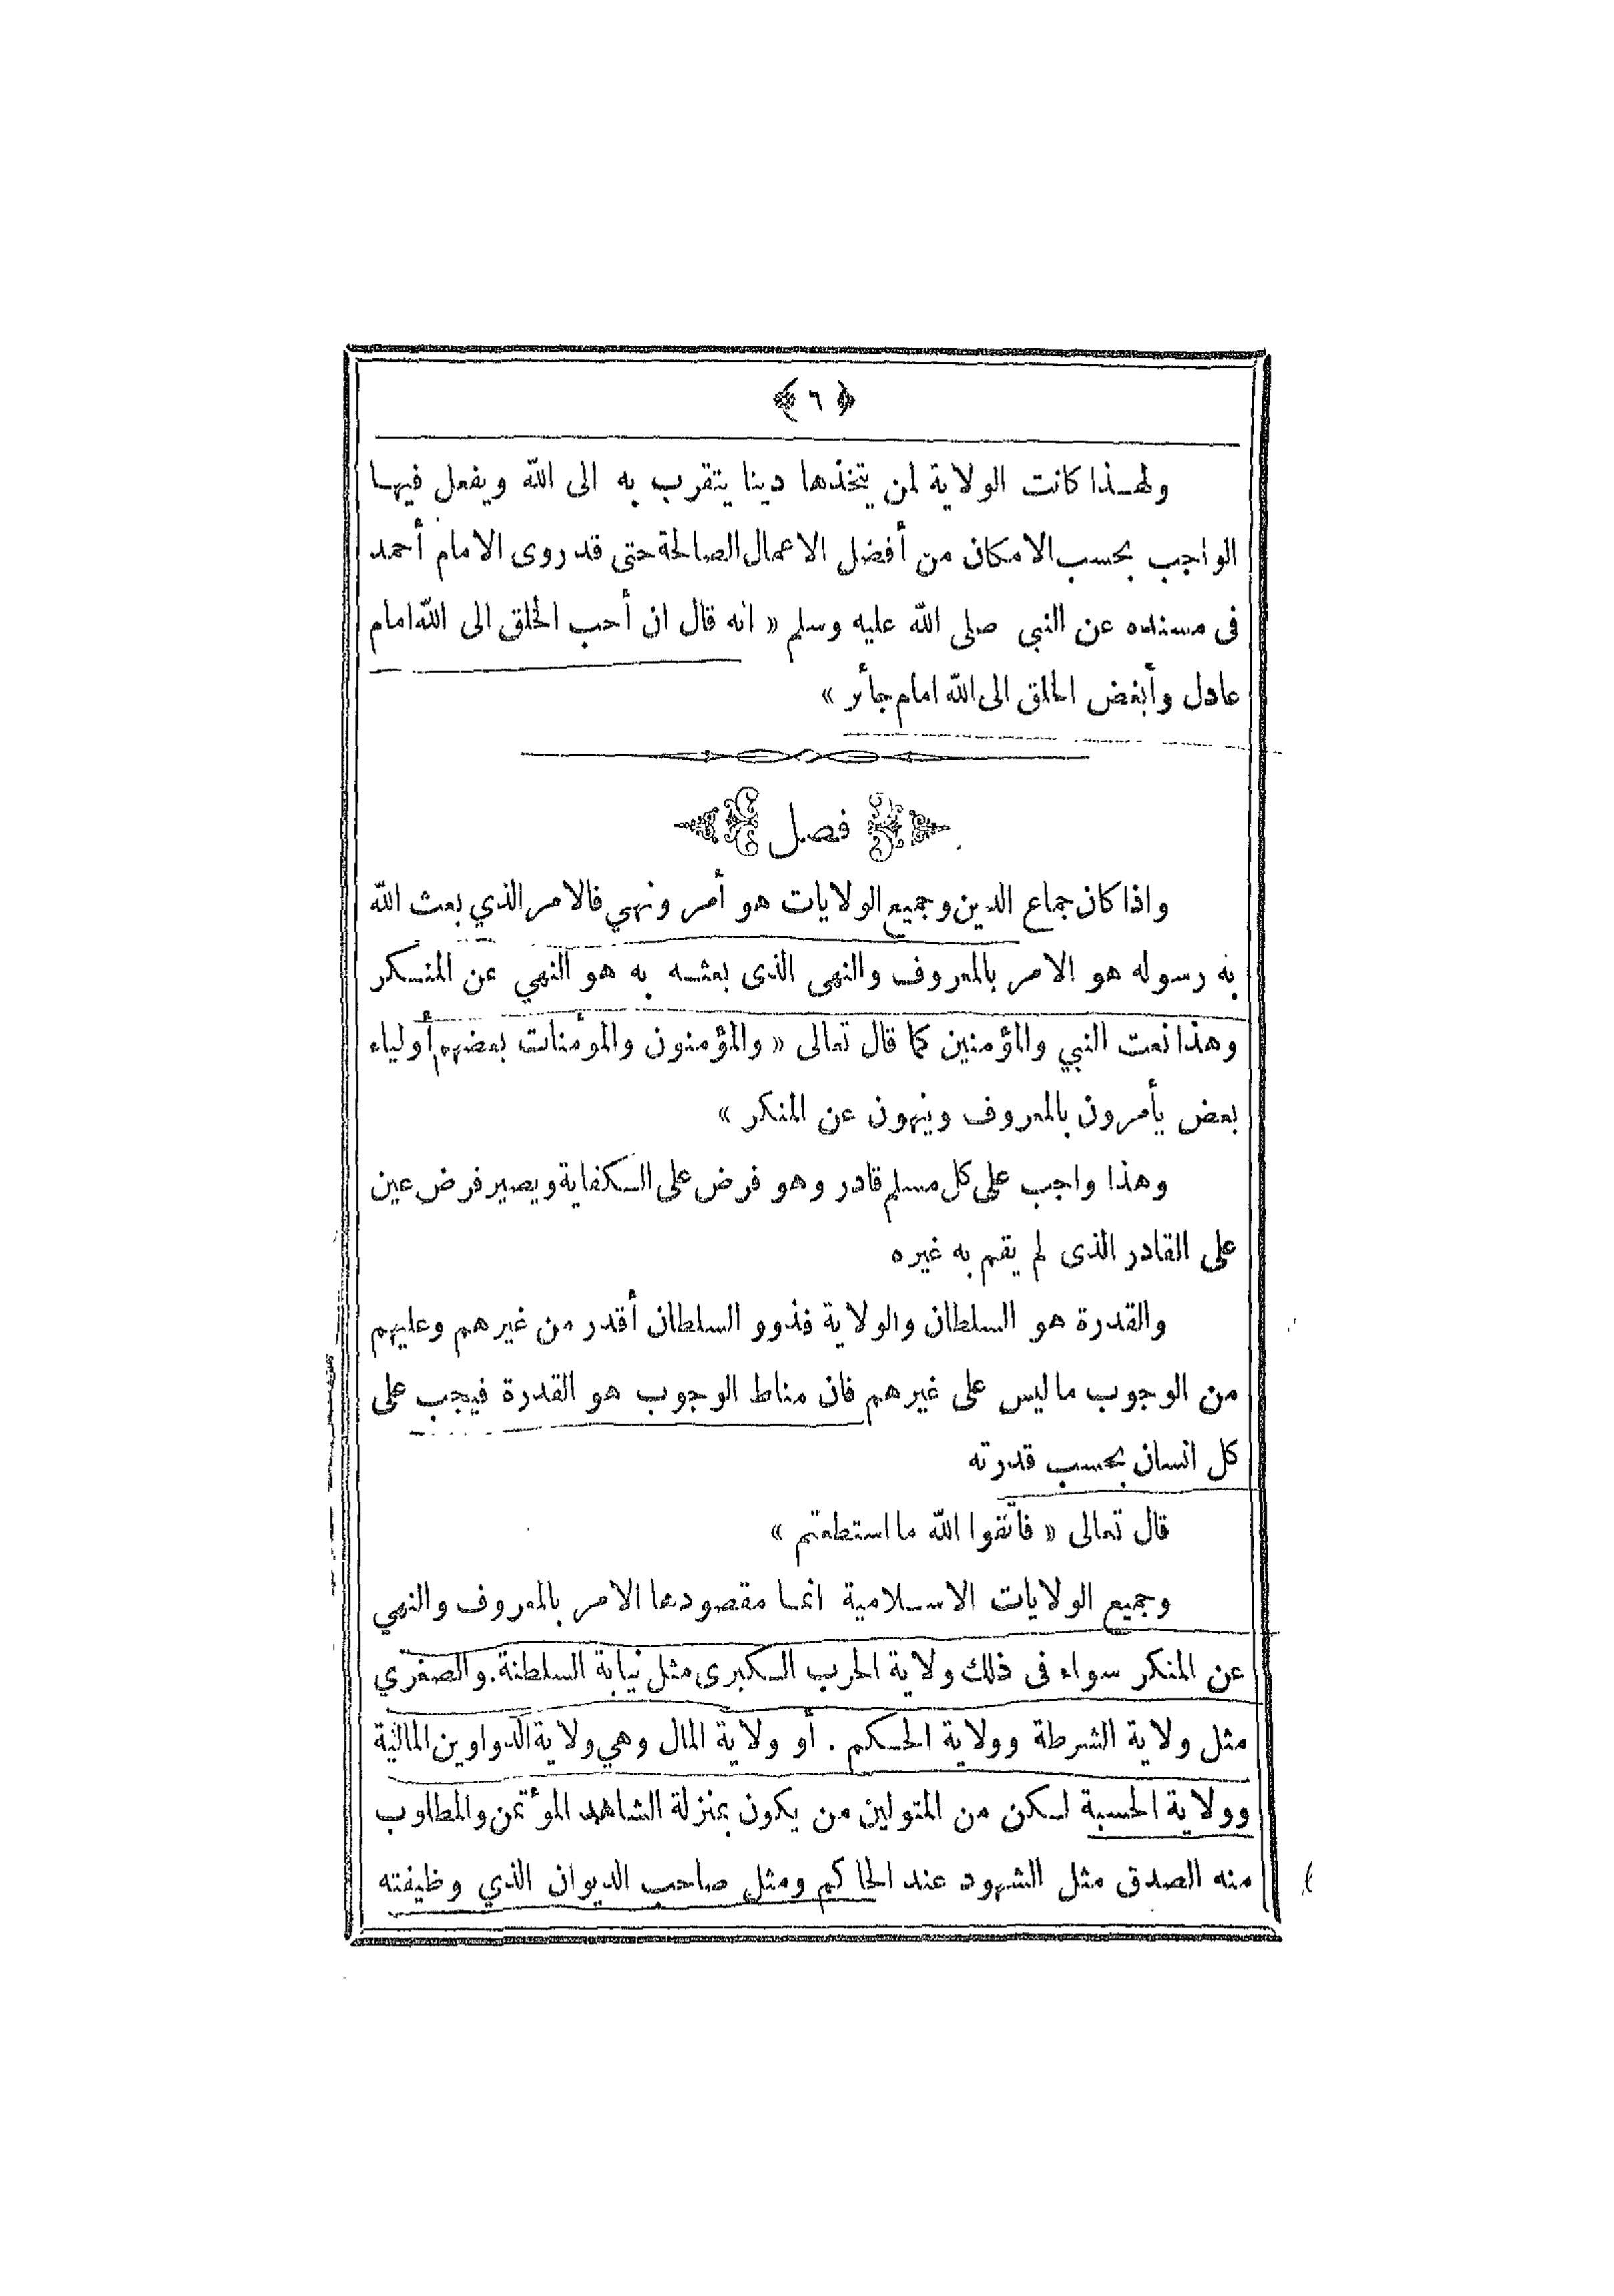 ﴿ ٦ ﴾
ولهذا كانت الولاية لمن يتخذها دينا يتقرب به الى الله ويفعل فيها
الواجب بحسب الامكان من أفضل الاعمال الصالحة حتى قد روى الامام أحمد
فى مسنده عن النبي صلى الله عليه وسلم « انه قال ان أحب الخلق الى الله امام
عادل وأبغض الخلق الى الله امام جائر »
فصل
واذا كان جماع الدين وجميع الولايات هو أمر ونهي فالامر الذي بعث الله
به رسوله هو الامر بالمعروف والنهى الذى بعثه به هو النهي عن المنكر
وهذا نعت النبي والمؤمنين كما قال تعالى « والمؤمنون والمؤمنات بعضهم أولياء
بعض يأمرون بالمعروف وينهون عن المنكر »
وهذا واجب على كل مسلم قادر وهو فرض على الكفاية ويصير فرض عين
على القادر الذى لم يقم به غيره
والقدرة هو السلطان والولاية فذوو السلطان أقدر من غيرهم وعليهم
من الوجوب ما ليس على غيرهم فان مناط الوجوب هو القدرة فيجب على
كل انسان بحسب قدرته
قال تعالى « فاتقوا الله ما استطعتم »
وجميع الولايات الاسلامية انما مقصودها الامر بالمعروف والنهي
عن المنكر سواء فى ذلك ولاية الحرب الكبرى مثل نيابة السلطنة. والصغري
مثل ولاية الشرطة وولاية الحكم . أو ولاية المال وهي ولاية الدواوين المالية
وولاية الحسبة لكن من المتولين من يكون بمنزلة الشاهد المؤتمن والمطلوب
منه الصدق مثل الشهود عند الحاكم ومثل صاحب الديوان الذي وظيفته